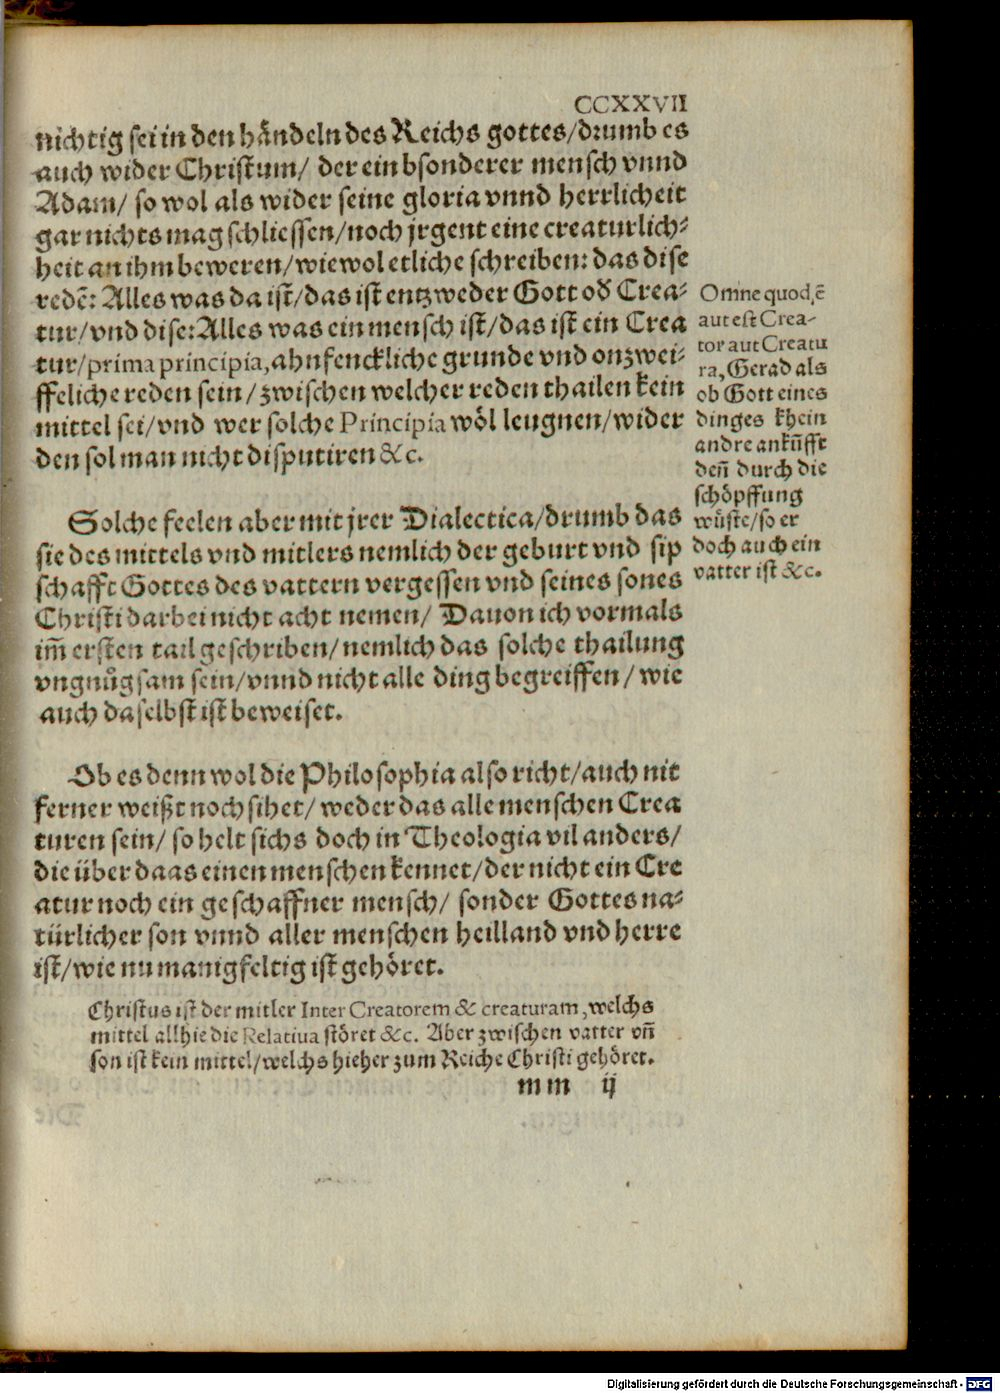 CCXXVII
nichtig sei in den händeln des Reichs gottes/drumb es
auch wider Christum/ der ein bsonderer mensch vnnd
Adam/ so wol als wider seine gloria vnnd herrlicheit
gar nichts mag schliessen/noch jrgent eine creaturlich⸗
heit an ihm beweren/wiewol etliche schreiben: das dise
redē: Alles was da ist/das ist entzweder Gott oď Crea⸗
tur/vnd dise: Alles was ein mensch ist/das ist ein Crea
tur/prima principia, ahnfenckliche grunde vnd onzwei⸗
ffeliche reden sein/zwischen welcher reden thailen kein
mittel sei/vnd wer solche Principia wöl leugnen/wider
den sol man nicht disputiren &c.
Solche feelen aber mit jrer Dialectica/drumb das
sie des mittels vnd mitlers nemlich der geburt vnd sip
schafft Gottes des vattern vergessen vnd seines sones
Christi darbei nicht acht nemen/ Dauon ich vormals
im̄ ersten tail geschriben/nemlich das solche thailung
vngnůgsam sein/vnnd nicht alle ding begreiffen/wie
auch daselbst ist beweiset.
Ob es denn wol die Philosophia also richt/auch nit
ferner weißt noch sihet/ weder das alle menschen Crea
turen sein/ so helt sichs doch in Theologia vil anders/
die über daas einen menschen kennet/der nicht ein Cre
atur noch ein geschaffner mensch/ sonder Gottes na⸗
türlicher son vnnd aller menschen heilland vnd herre
ist/wie nu manigfeltig ist gehöret.
Omne quod, ē
aut est Crea-
tor aut Creatu
ra, Gerad als
ob Gott eines
dinges khein
andre ankūfft
deñ durch die
schöpffung
wüste/so er
doch auch ein
vatter ist &c.
Christus ist der mitler Inter Creatorem & creaturam, welchs
mittel allhie die Relatiua störet &c. Aber zwischen vatter vñ
son ist kein mittel/welchs hieher zum Reiche Christi gehöret.
mm ij
Digitalisierung gefördert durch die Deutsche Forschungsgemeinschaft - DFG